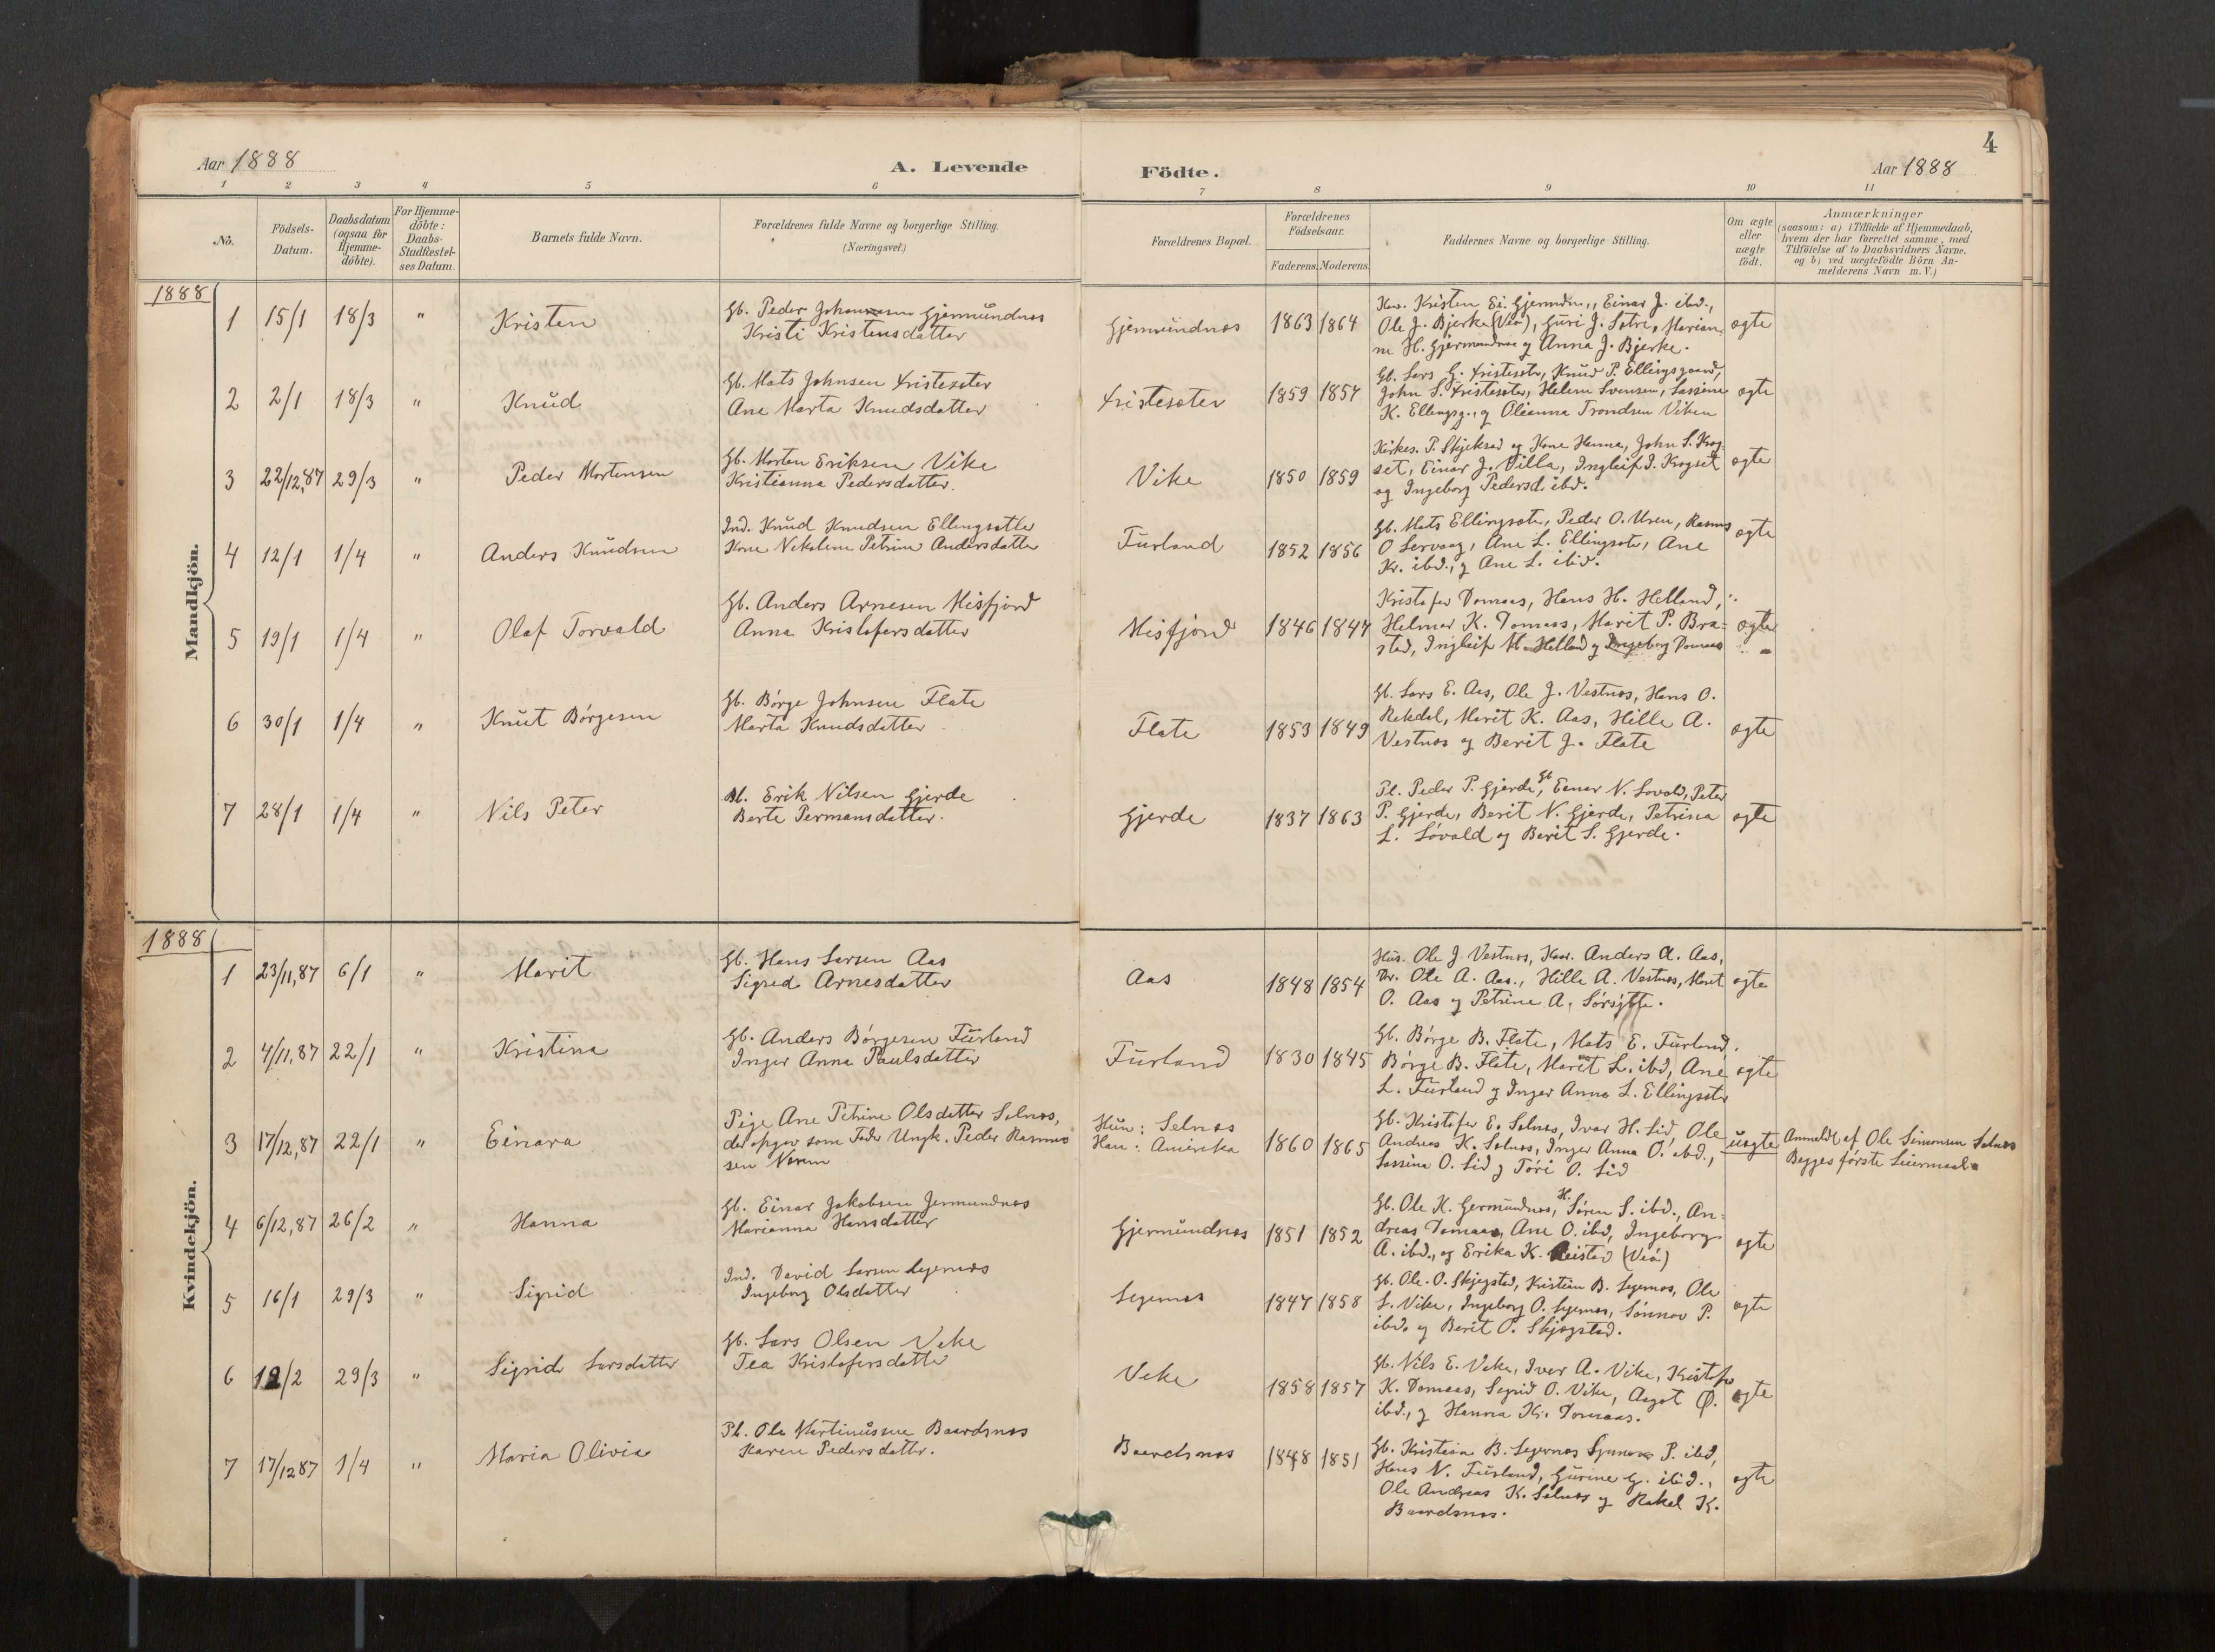 4
Aar 1888
A. Levende
Födte.
Aar 1888
1 2 3 4 5 6 7 8 9 10 11
No.
Födsels-
Datum.
Daabsdatum
(ogsaa for
Hjemme-
döbte).
For Hjemme-
döbte:
Daabs-
Stadfæstel-
ses Datum.
Barnets fulde Navn.
Forældrenes fulde Navne og borgerlige Stilling.
(Næringsvei.)
Forældrenes Bopæl.
Forældrenes
Födselsaar.
Faderens. Moderens.
Faddernes Navne og borgerlige Stilling.
Om ægte
eller
uægte
födt.
Anmærkninger
(saasom: a) i Tilfælde af Hjemmedaab,
hvem der har forrettet samme, med
Tilföielse af to Daabsvidners Navne,
og b) ved uægtefödte Börn An-
melderens Navn m. V.)
Mandkjön.
1888
1 15/1 18/3 " Kristen
Gb. Peder Johansen Gjermundnæs
Kristi Kristensdatter
Gjermundnæs 1863 1864
Kristen Ei. Gjermdn., Einar J. ibd.,
Ole J. Bjerke (Veö), Guri J. Sætre, Marian-
ne H. Gjermundnæs og Anna J. Bjerke.
ægte
2 2/1 18/3 " Knud
Gb. Mats Johnsen Fristesæter
Ane Marta Knudsdatter
Fristesæter 1859 1857
Gb. Lars G. Fristesætr, Knud P. Ellingsgaard,
John S. Fristesæter, Helene Svensen, Lassine
K. Ellingsg., og Oleanna Trondsen Viken
ægte
3 22/12,87 29/3 " Peder Mortensen
Gb. Morten Eriksen Vike
Kristianna Pedersdatter.
Vike 1850 1859
Kirkes. P. Skjeksad og Kone Hanna, John S. Krog-
set, Einar J. Villa, Ingleif J. Krogset
og Ingeborg Pedersd. ibd.
ægte
4 12/1 1/4 " Anders Knudsen
Ind. Knud Knudsen Ellingsæter
Kone Nikoline Petrine Andersdatter
Furland 1852 1856
Gb. Mats Ellingsæter, Peder O. Uren, Rasmus
O Lervaag, Ane L. Ellingsæter, Ane
Kr. ibd., og Ane L. ibid.
ægte
5 19/1 1/4 " Olaf Torvald
Gb. Anders Arnesen Misfjord
Anna Kristofersdatter
Misfjord 1846 1847
Kristofer Tomaas, Hans H. Helland,
Helmer K. Tomaas, Marit P. Bra-
stad, Ingleif M. Helland og Ingeborg Tomaas
ægte
6 30/1 1/4 " Knut Børgesen
Gb. Børge Johnsen Flate
Marta Knudsdatter
Flate 1853 1849
Gb. Lars E. Aas, Ole J. Vestnæs, Hans O.
Rekdal, Marit K. Aas, Hille A.
Vestnæs og Berit J. Flate
ægte
7 28/1 1/4 " Nils Peter
Erik Nilsen Gjerde
Berte Permansdatter.
Gjerde 1837 1863
Pl. Peder P. Gjerde, Gb. Einar N. Løvold, Peter
P. Gjerde, Berit N. Gjerde, Petrina
L. Løvald og Berit S. Gjerde.
ægte
Kvindekjön.
1888
1 23/11,87 6/1 " Marit
Gb. Hans Larsen Aas
Sigrid Arnesdatter
Aas 1848 1854
Hus. Ole J. Vestnæs, Anders A. Aas,
Dr. Ole A. Aas., Hille A. Vestnæs, Marit
O. Aas og Petrine A.
ægte
2 4/11,87 22/1 " Kristina
Gb. Anders Børgesen Furland
Inger Anna Paulsdatter
Furland 1830 1845
Gb. Børge B. Flate, Mats E. Furland,
Børge B. Flate, Marit L. ibd, Ane
L. Furland og Inger Anna L. Ellingsæter
ægte
3 17/12,87 22/1 " Einara
Pige Ane Petrine Olsdatter Selnæs,
der opgav som Fader Ungk. Peder Rasmus
sen
Hun: Selnæs
Han: Amerika
1860 1865
Gb. Kristofer E. Selnæs, Ivar H. Lid, Ole
Andreas K. Selnæs, Inger Anna O. ibd.,
Lassina O. Lid og Töri O. Lid
uægte
Anmeldt af Ole Simonsen Selnæs
Begges første Leiermaal.
4 6/12,87 26/2 " Hanna
Gb. Einar Jakobsen Jermundnæs
Marianna Hansdatter
Gjermundnæs 1851 1852
Gb. Ole K. Germundnæs, H. Søren S. ibd., An-
dreas Tomaas, Ane O. ibd, Ingeborg
A. ibd., og Erika K. Reistad (Veö)
ægte
5 16/1 29/3 " Sigrid
Ind. David Larsen Legernæs
Ingeborg Olsdatter
Legernæs 1847 1858
Gb. Ole O. Skjegstad, Kristian B. Legernæs, Ole
L. Vike, Ingeborg O. Legernæs, Sønnov P.
ibd. og Berit O. Skjegstad.
ægte
6 12/2 29/3 " Sigrid Larsdatter
Gb. Lars Olsen Vike
Tea Kristofersdatter
Vike 1858 1857
Gb. Nils E. Vike, Iver A. Vike, Kristofer
K. Tomaas, Sigrid O. Vike, Aagot Ø.
ibd., og Hanna Kr. Tomaas.
ægte
7 17/12 87 1/4 " Maria Olivia
Pl. Ole Martinussen Baardsnæs
Karen Pedersdatter.
Baardsnæs 1848 1851
Gb. Kristian B. Legernæs Synnøve P. ibd,
Hans N. Furland, Gurine G. ibid.,
Ole Andreas K. Selnæs og Rakel K.
Baardsnæs.
ægte